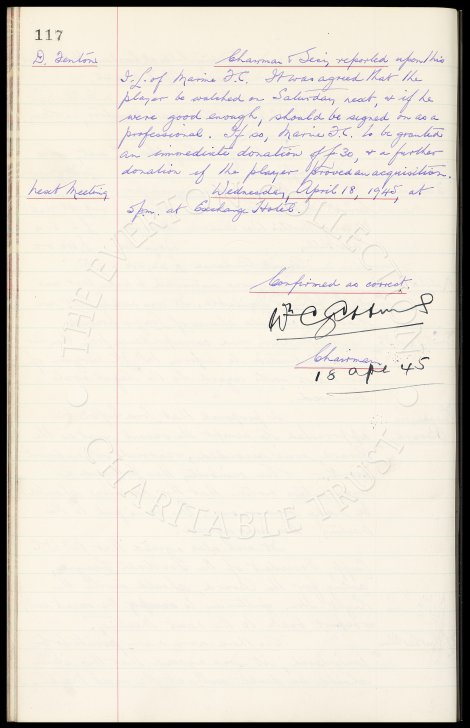 117
D. Fenton
Chairman & Secy. reported upon this
I.L. of Marine F.C. It was agreed that the
player be watched on Saturday next, & if he
were good enough, should be signed on as a
professional. If so, Marine F.C. to be granted
an immediate donation of £30, & a further
donation if the player proved an acquisition.
Next Meeting
Wednesday, April 18, 1945, at
5pm. at Exchange Hotel.
Confirmed as correct.
Chairman
18 Apl 45
THE EVERTON COLLECTION
CHARITABLE TRUST